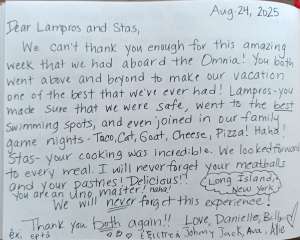 Aug. 24, 2025
Dear Lampros and Stas,
We can't thank you enough for this amazing
week that we had aboard the Omnia! You both
went above and beyond to make our vacation
one of the best that we've ever had! Lampros - you
made sure that we were safe, went to the best
swimming spots, and even joined in our family
game nights - Taco, Cat, Goat, Cheese, Pizza! Haha!
Stas - your cooking was incredible. We looked forward
to every meal. I will never forget your meatballs
and your pastries! Delicious!!
you are an Uno master! haha!
Long Island,
New York
We will never forget this experience!
Thank you both again!! Love, Danielle, Billy
Johnny Jack, Ava, Allie